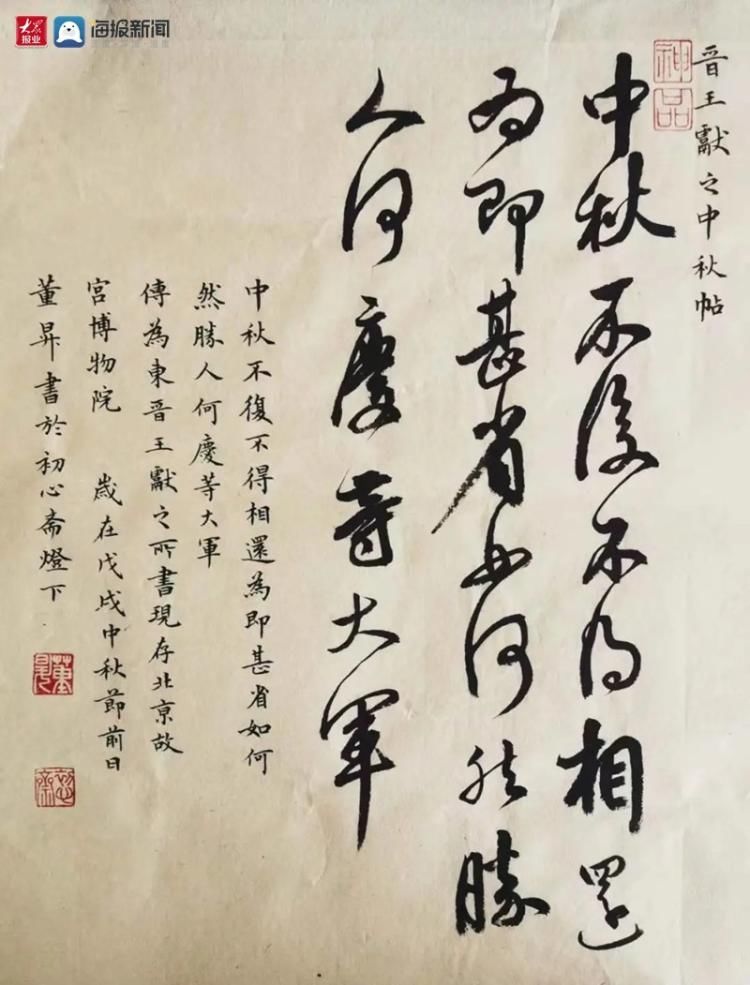 大众报业
海报新闻
晋王獻之中秋帖
神品
中秋不復不得相還
為即甚省如何然勝
人何慶等大軍
中秋不復不得相還為即甚省如何
然勝人何慶等大軍
傳為東晋王獻之所書現存北京故
宮博物院 歲在戊戌中秋節前日
董昇書於初心斎燈下